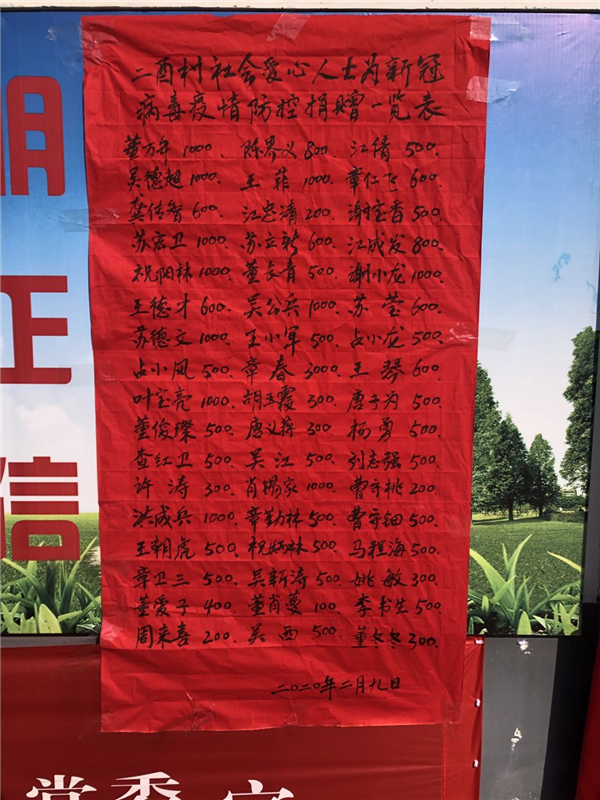 二酉村社会爱心人士为新冠
病毒疫情防控捐赠一览表
董万年 1000. 陈界义 800. 江倩 500.
吴德超 1000. 王菲 1000. 章仁飞 600.
龚传智 600. 江忠清 200. 谢宝香 500.
苏宏卫 1000. 苏立新 600. 江成发 800.
祝阳林 1000. 董长青 500. 谢小龙 1000.
王德才 600. 吴公兵 1000. 苏莹 600.
苏德文 1000. 王小军 500. 占小龙 500.
占小凤 500. 章春 3000. 王琴 600.
叶宝亮 1000. 胡玉霞 300. 唐子为 500.
董俊璨 500. 唐义蒋 300. 柯勇 500.
查红卫 500. 吴江 500. 刘志强 500.
许涛 300. 肖锡家 1000. 曹守桃 200.
洪成兵 1000. 章勤林 500. 曹守钿 500.
王朝虎 500. 祝炳林 500. 马程海 500.
章卫三 500. 吴新涛 500. 姚敏 300.
董爱子 400. 董肖蔓 100. 李书生 500.
周来喜 200. 吴西 500. 董冬冬 300.
二〇二〇年二月九日
明
正
信
党委宣